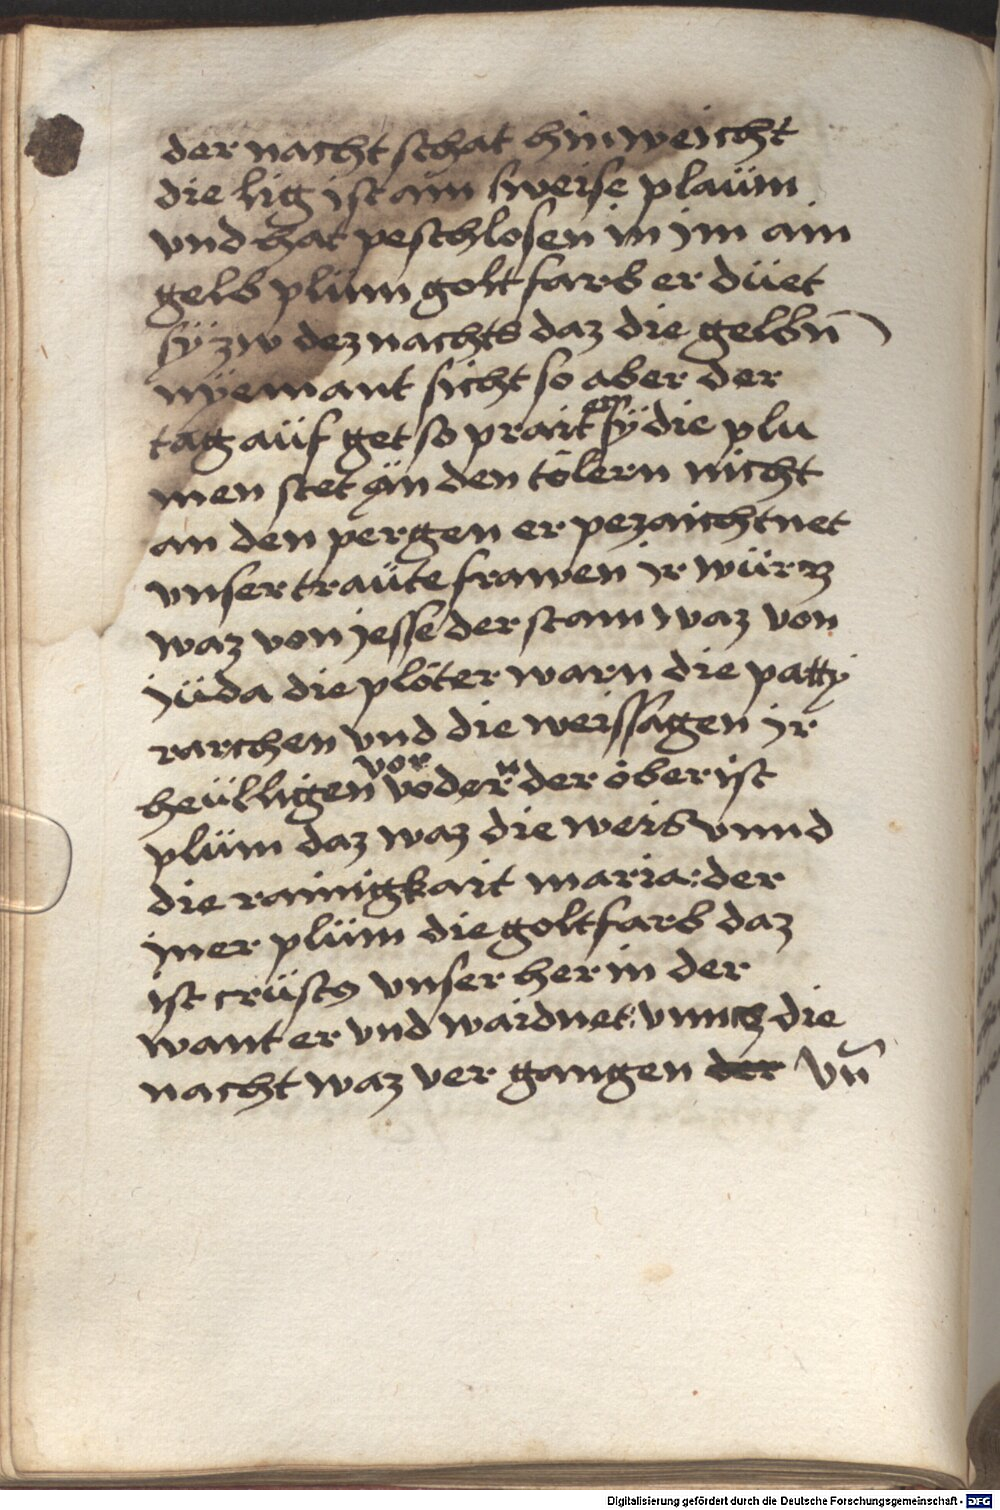 der nacht schat hin weicht
die lig ist ain sweise plaüm
vnd hat peschlosen in im ain
gelb plüm golt farb er düet
sÿ zw dez nachts daz die gelbn̄
nÿemant sicht so aber der
tag aüf get so prait er sÿ die plu
men stet in den tölern nicht
an den pergen er pezaichtnet
vnser traüte frawen ir würtz
waz von jesse der stam waz von
jüda die plöter warn die patty
rarchen vnd die weissagen ir
heülligen vor vodern der öber ist
plüm daz waz die weis vnnd
die rainigkait maria: der
iner plüm die golt farb daz
ist crüsts vnser her in der
want er vnd waidnet: vnncz die
nacht waz ver gangen der vn̄
Digitalisierung gefördert durch die Deutsche Forschungsgemeinschaft - DFG